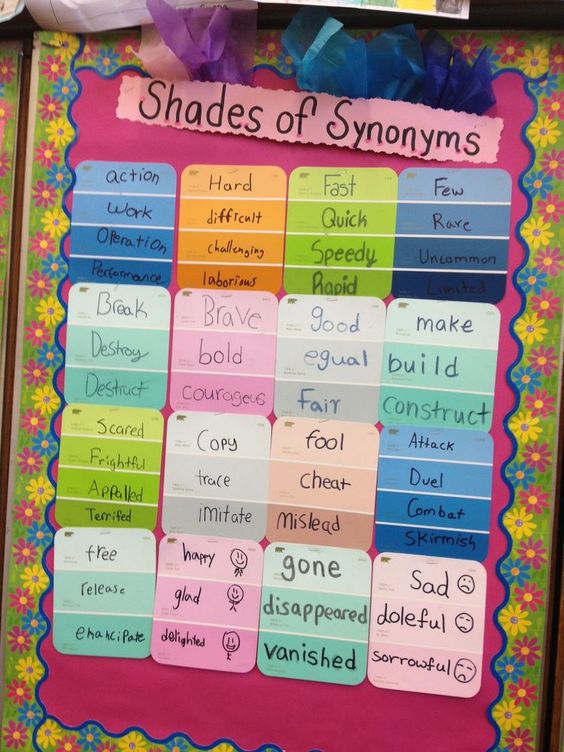 Shades of Synonyms
action
Work
Operation
Performance
Hard
difficult
challenging
laborious
Fast
Quick
Speedy
Rapid
Few
Rare
Uncommon
Limited
Break
Destroy
Destruct
Brave
bold
Courageus
good
equal
Fair
make
build
construct
Scared
Frightful
Appalled
Terrifed
Copy
trace
imitate
fool
Cheat
Mislead
Attack
Duel
Combat
Skirmish
free
release
emancipate
happy
glad
delighted
gone
disappeared
vanished
Sad
doleful
sorrowful